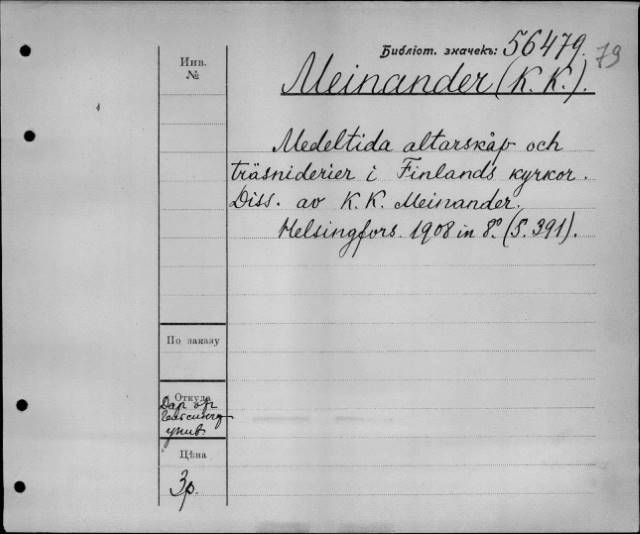 Библіот. значекъ: 56479. 79
Инв.
№
Meinander (K. K.).
Medeltida altarskåp och
träsniderier i Finlands kyrkor.
Diss. av K. K. Meinander.
Helsingfors. 1908 in 8º. (S. 391).
По заказу
Откуда
Дар от
унив.
Цѣна
3р.